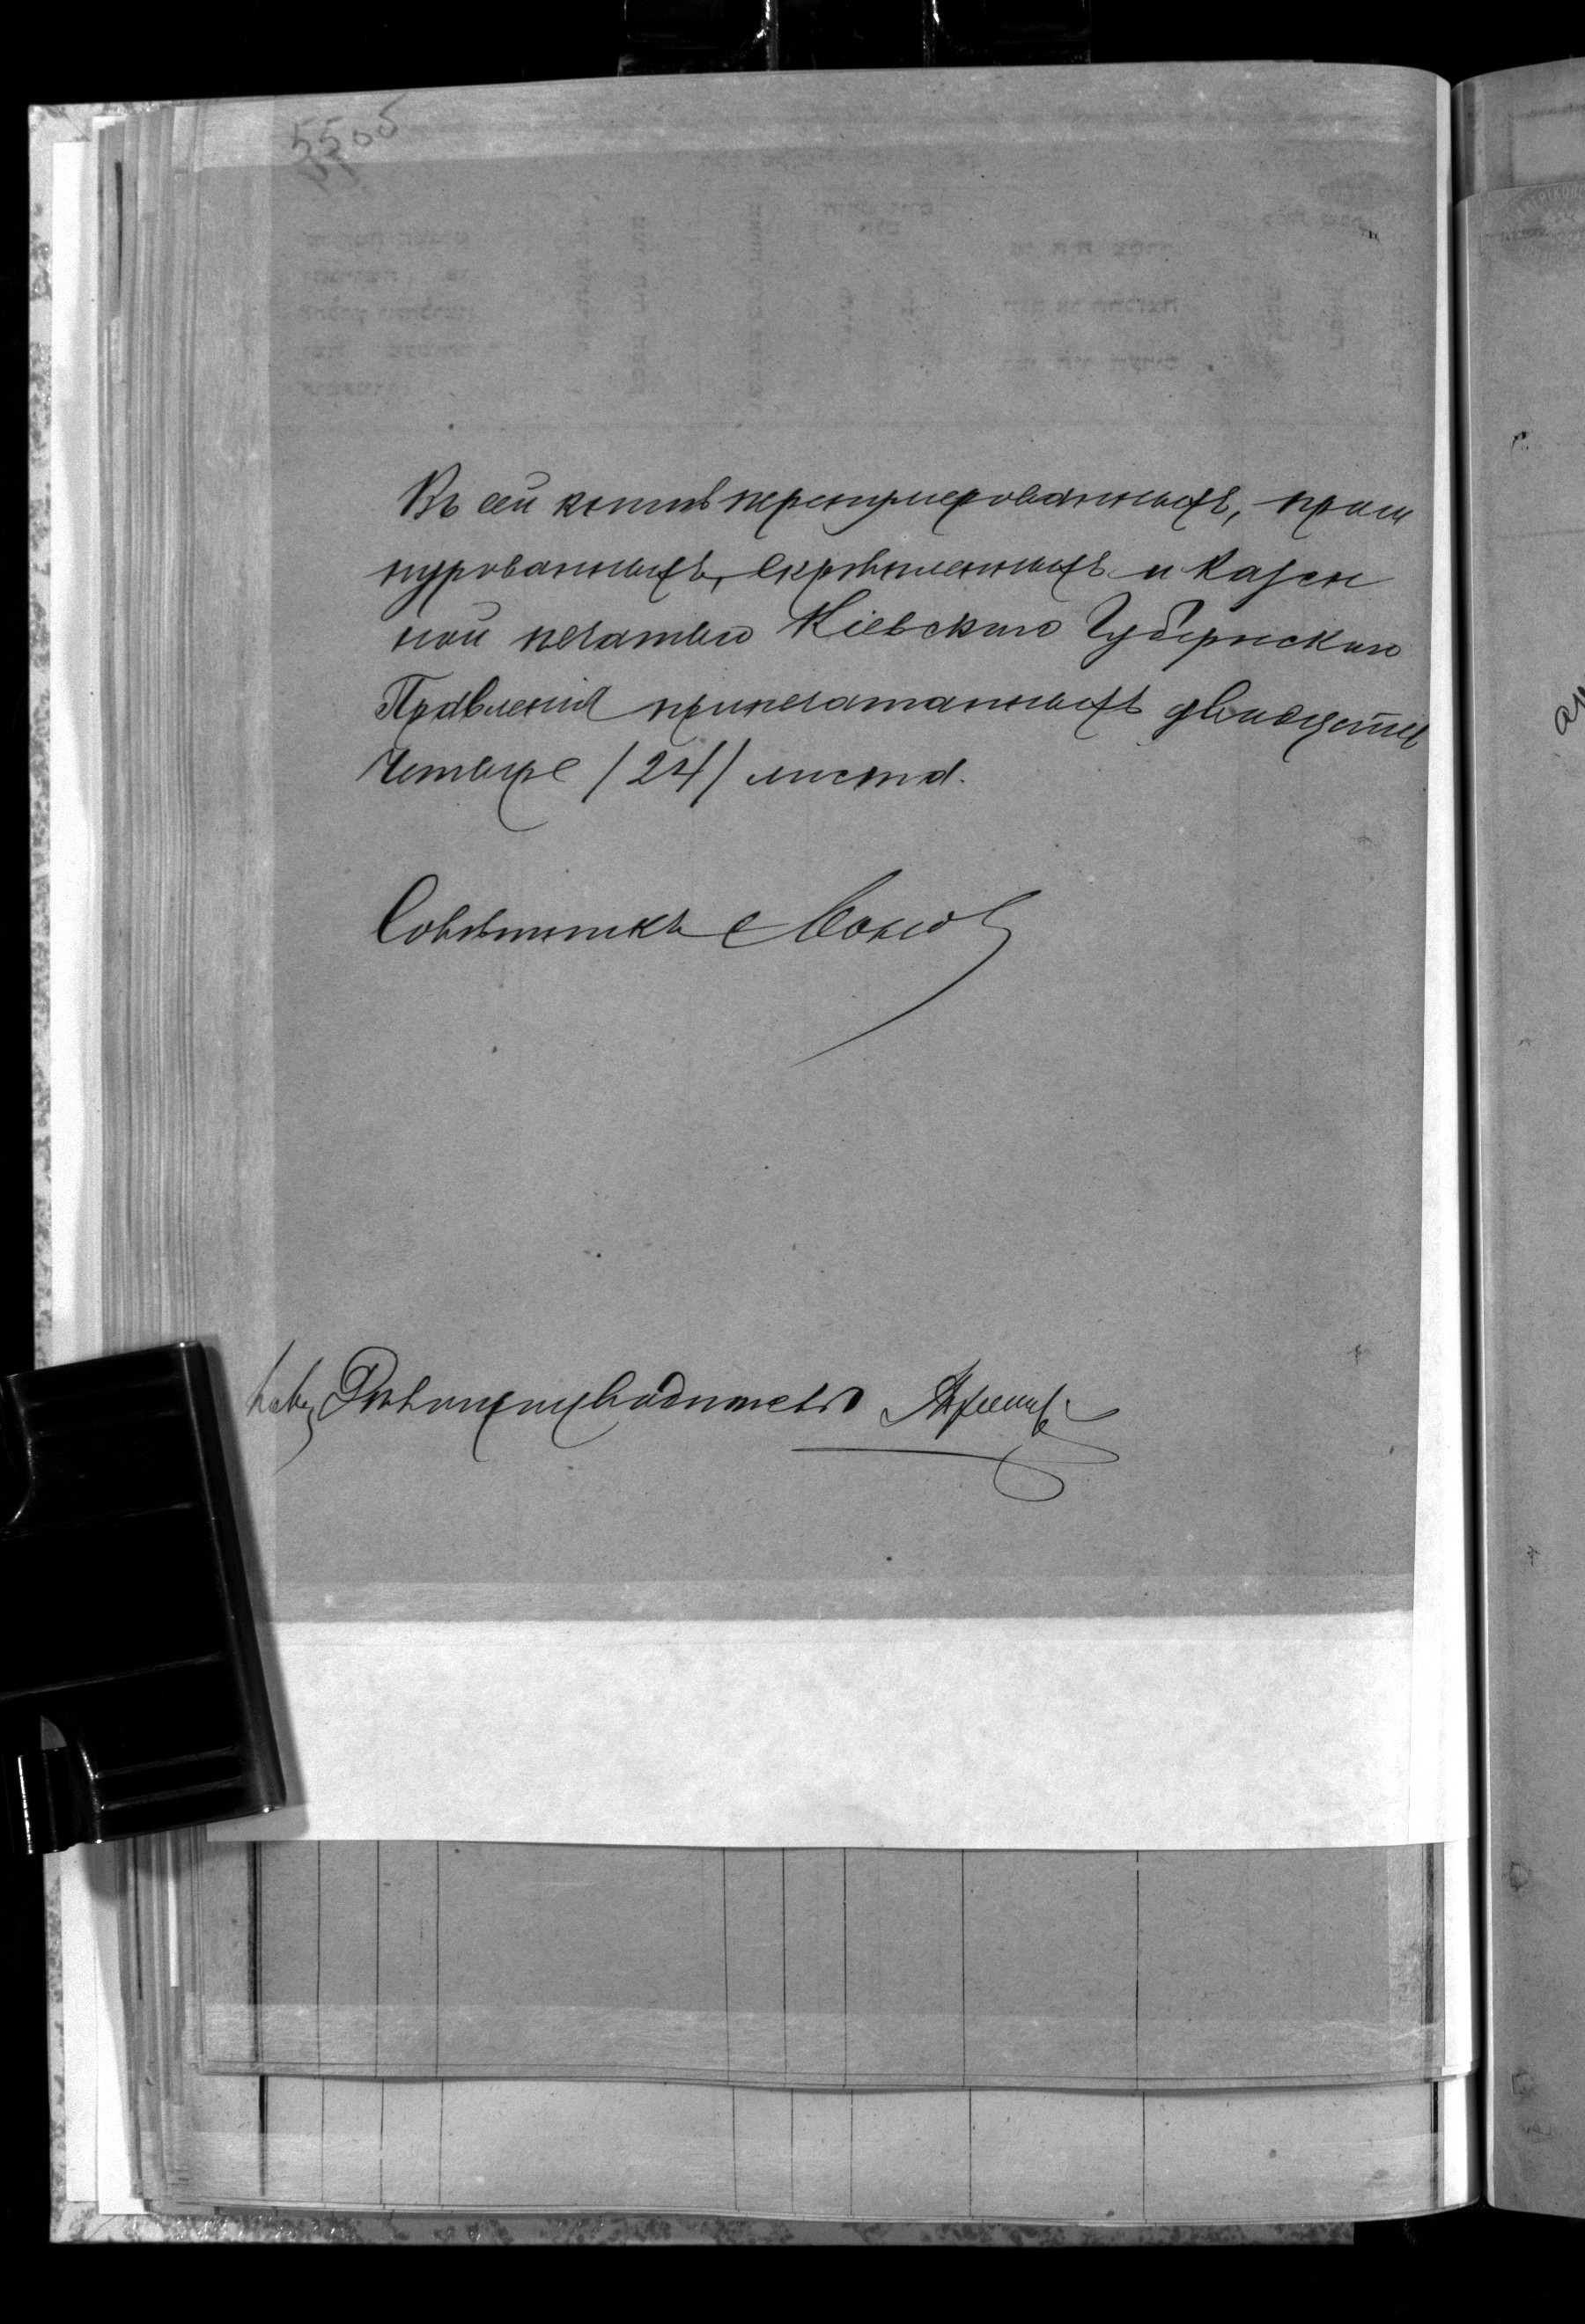 55об
Въ сей книгѣ перенумерованныхъ, прош
нурованныхъ, скрѣпленныхъ и казен
ной печатью Кіевскаго Губернскаго
Правленія припечатанныхъ двадцать
четыре /24/ листа.
Совѣтникъ
Дѣлопроизводитель